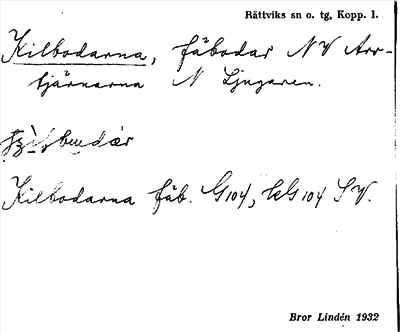 Rättviks sn o. tg, Kopp. l.
Kilbodarna, fäbodar NV Arr-
tjärnarna N Ljugaren.
Kilbodarna fäb. G104, kG104 SV.
Bror Lindén 1932